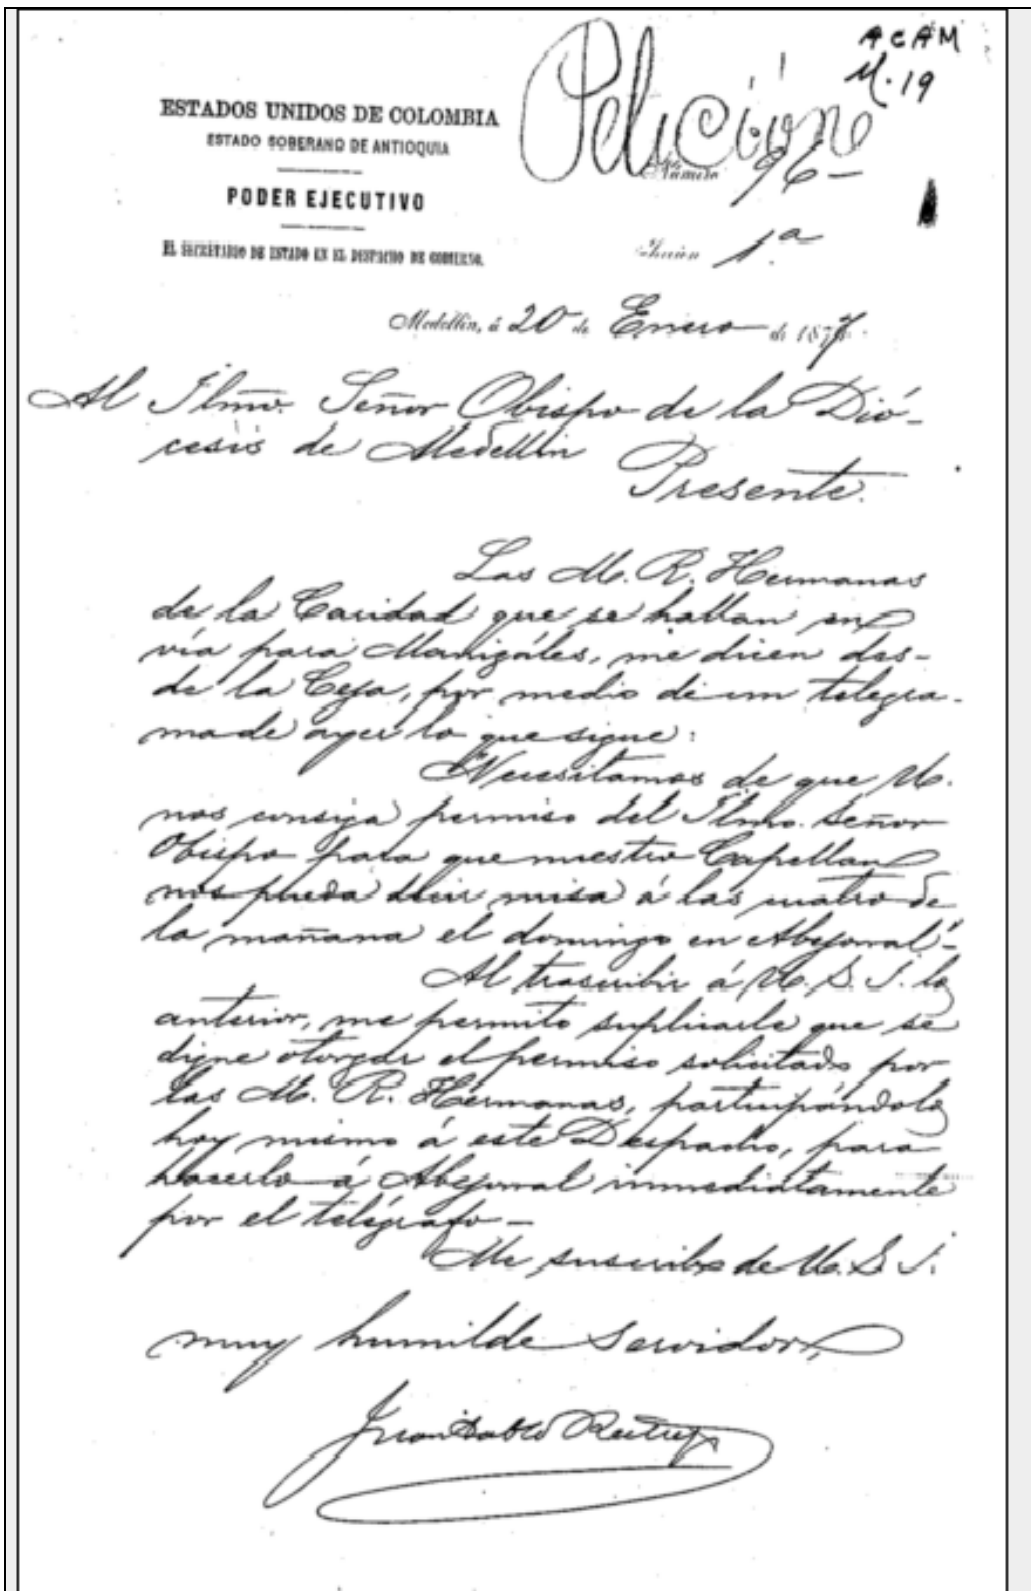 ACAM
M. 19
Peticione
ESTADOS UNIDOS DE COLOMBIA
ESTADO SOBERANO DE ANTIOQUIA
PODER EJECUTIVO
EL SECRETARIO DE ESTADO EN EL DESPACHO DE GOBIERNO.
Número 96–
Sección 1.ª
Medellín, á 20 de Enero de 1877.
Al Ilmo. Señor Obispo de la Dió-
cesis de Medellín
Presente.
Las M. R. Hermanas
de la Caridad que se hallan en
vía para Manizáles, me dicen des-
de la Ceja, por medio de un telegra-
ma de ayer lo que sigue:
"Necesitamos de que U.
nos consiga permiso del Ilmo. Señor
Obispo para que nuestro Capellan
nos pueda decir misa á las cuatro de
la mañana el domingo en Abejorral"–
Al trascribir á U. S. I. lo
anterior, me permito suplicarle que se
digne otorgar el permiso solicitado por
las M. R. Hermanas, participándolo
hoy mismo á este Despacho, para
hacerlo á Abejorral inmediatamente
por el telégrafo–
Me suscribo de U. S. I.
muy humilde servidor,
Juan Pablo